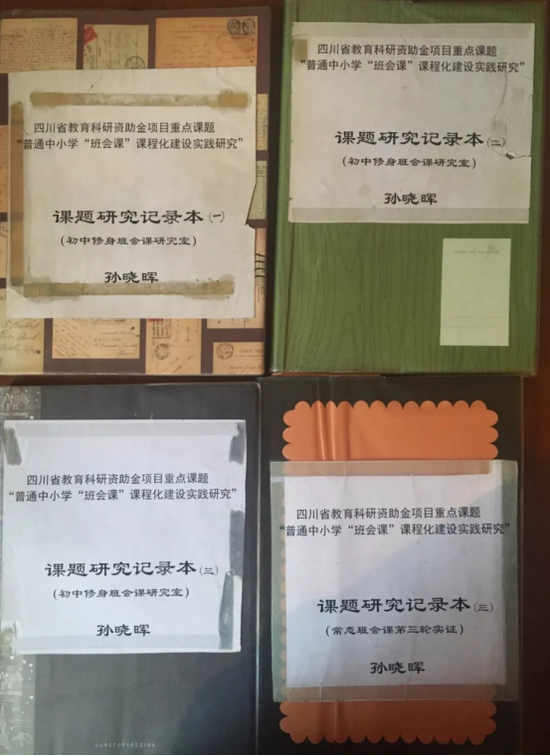 四川省教育科研资助金项目重点课题
“普通中小学“班会课”课程化建设实践研究”
课题研究记录本(一)
(初中修身班会课研究室)
孙晓晖
四川省教育科研资助金项目重点课题
“普通中小学“班会课”课程化建设实践研究”
课题研究记录本(二)
(初中修身班会课研究室)
孙晓晖
四川省教育科研资助金项目重点课题
“普通中小学“班会课”课程化建设实践研究”
课题研究记录本(三)
(初中修身班会课研究室)
孙晓晖
四川省教育科研资助金项目重点课题
“普通中小学“班会课”课程化建设实践研究”
课题研究记录本(三)
(常态班会课第三轮实证)
孙晓晖